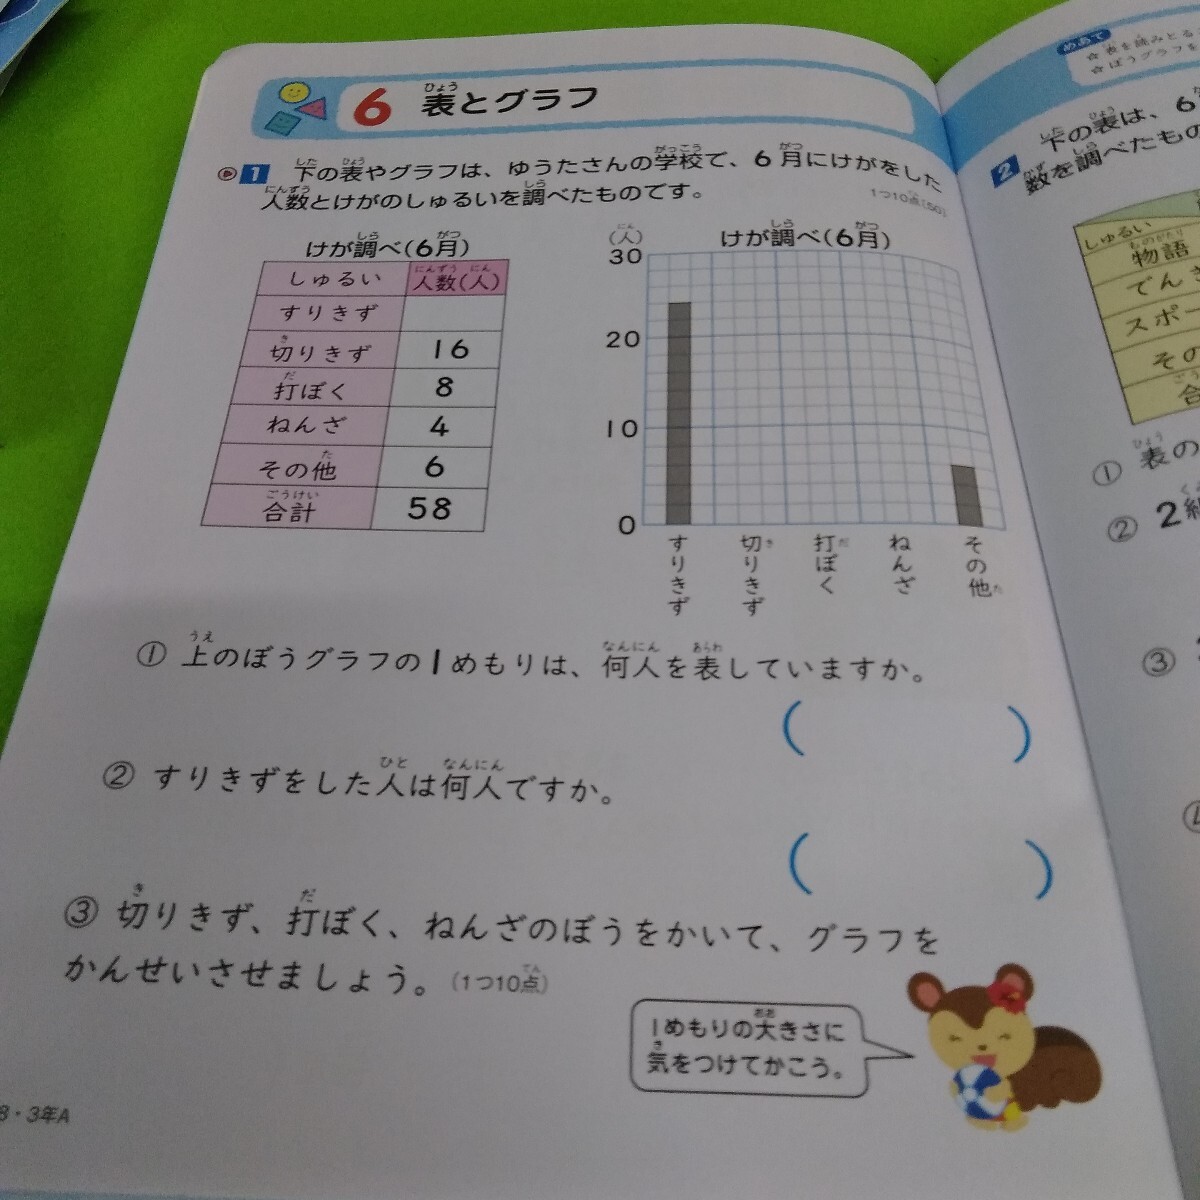 6 表とグラフ
1 下の表やグラフは、ゆうたさんの学校で、6月にけがをした
人数とけがのしゅるいを調べたものです。
1つ10点(50)
けが調べ(6月)
しゅるい 人数(人)
すりきず
切りきず 16
打ぼく 8
ねんざ 4
その他 6
合計 58
(人) けが調べ(6月)
30
20
10
0
すりきず 切りきず 打ぼく ねんざ その他
① 上のぼうグラフの1めもりは、何人を表していますか。
( )
② すりきずをした人は何人ですか。
( )
③ 切りきず、打ぼく、ねんざのぼうをかいて、グラフを
かんせいさせましょう。(1つ10点)
1めもりの大きさに
気をつけてかこう。
8・3年A
めあて
☆表を読みとる
☆ぼうグラフを
2 下の表は、6
数を調べたもの
しゅるい
物語
でんき
スポー
その
合
① 表の
② 2組
③